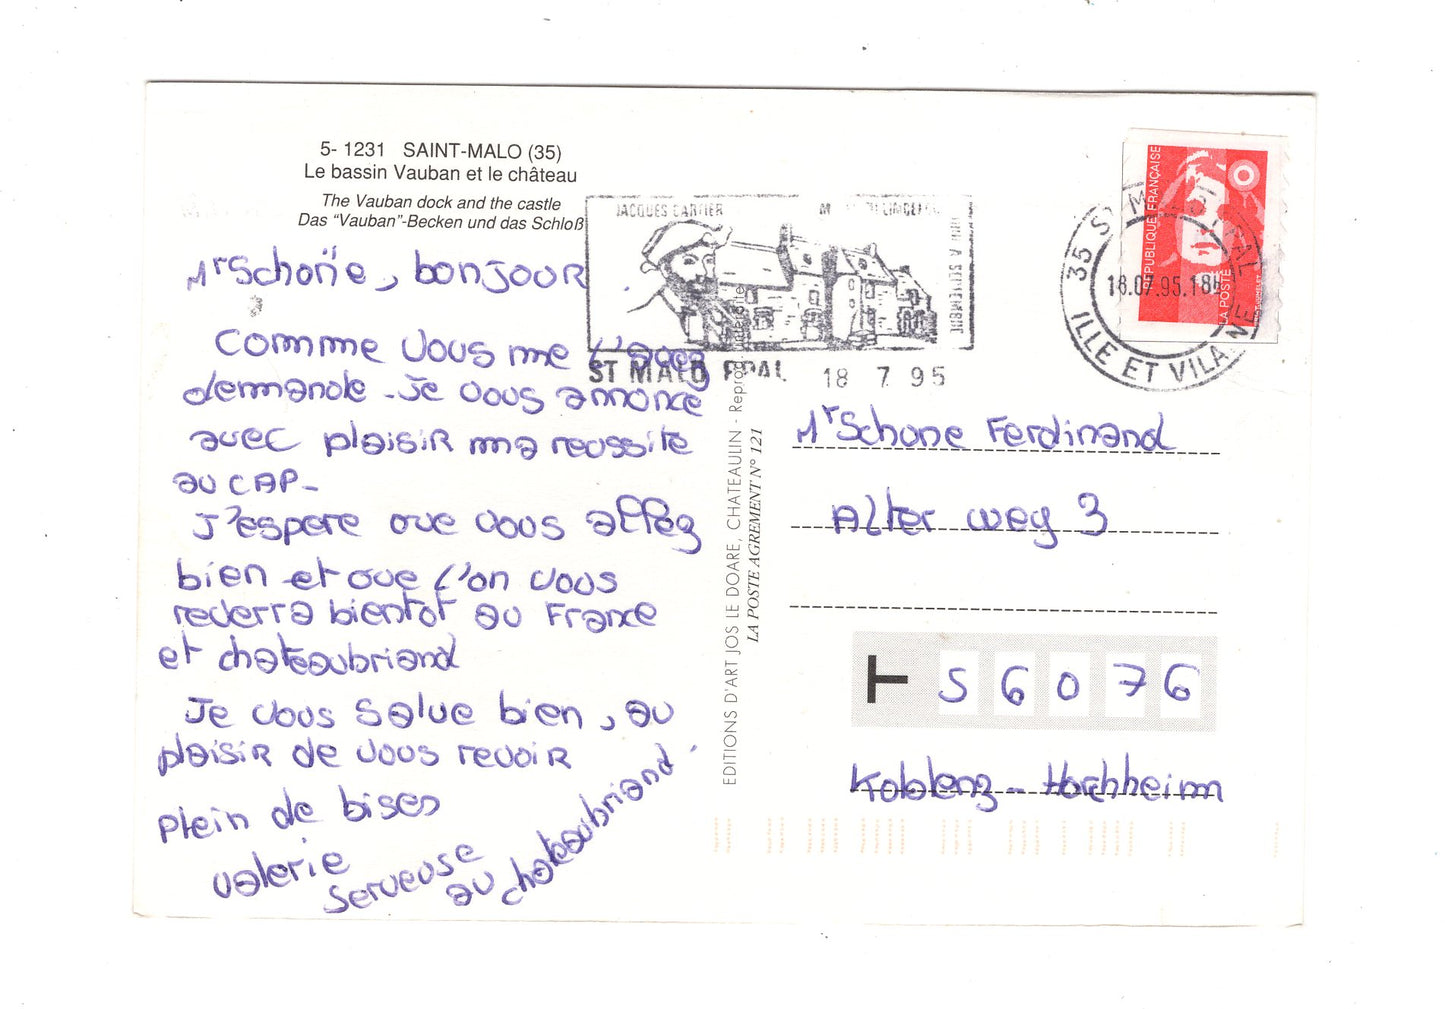 5- 1231 SAINT-MALO (35)
Le bassin Vauban et le château
The Vauban dock and the castle
Das "Vauban"-Becken und das Schloß
Mr Schone, bonjour
Comme vous me l'avez
demande - Je vous annonce
avec plaisir ma reussite
au CAP -
J'espere que vous allez
bien et que l'on vous
reverra bientot au France
et chateaubriand
Je vous salue bien, au
plaisir de vous revoir
plein de bises
valerie
serveuse
au chateaubriand.
JACQUES CARTIER
ST MALO PPAL 18 7 95
EDITIONS D'ART JOS LE DOARE, CHATEAULIN - Reprod. interdite
LA POSTE AGREMENT N° 121
REPUBLIQUE FRANÇAISE
LA POSTE
35 ST MALO PPAL
18.07.95.18H
ILLE ET VILAINE
Mr Schone Ferdinand
Alter weg 3
56076
Koblenz - Horchheim